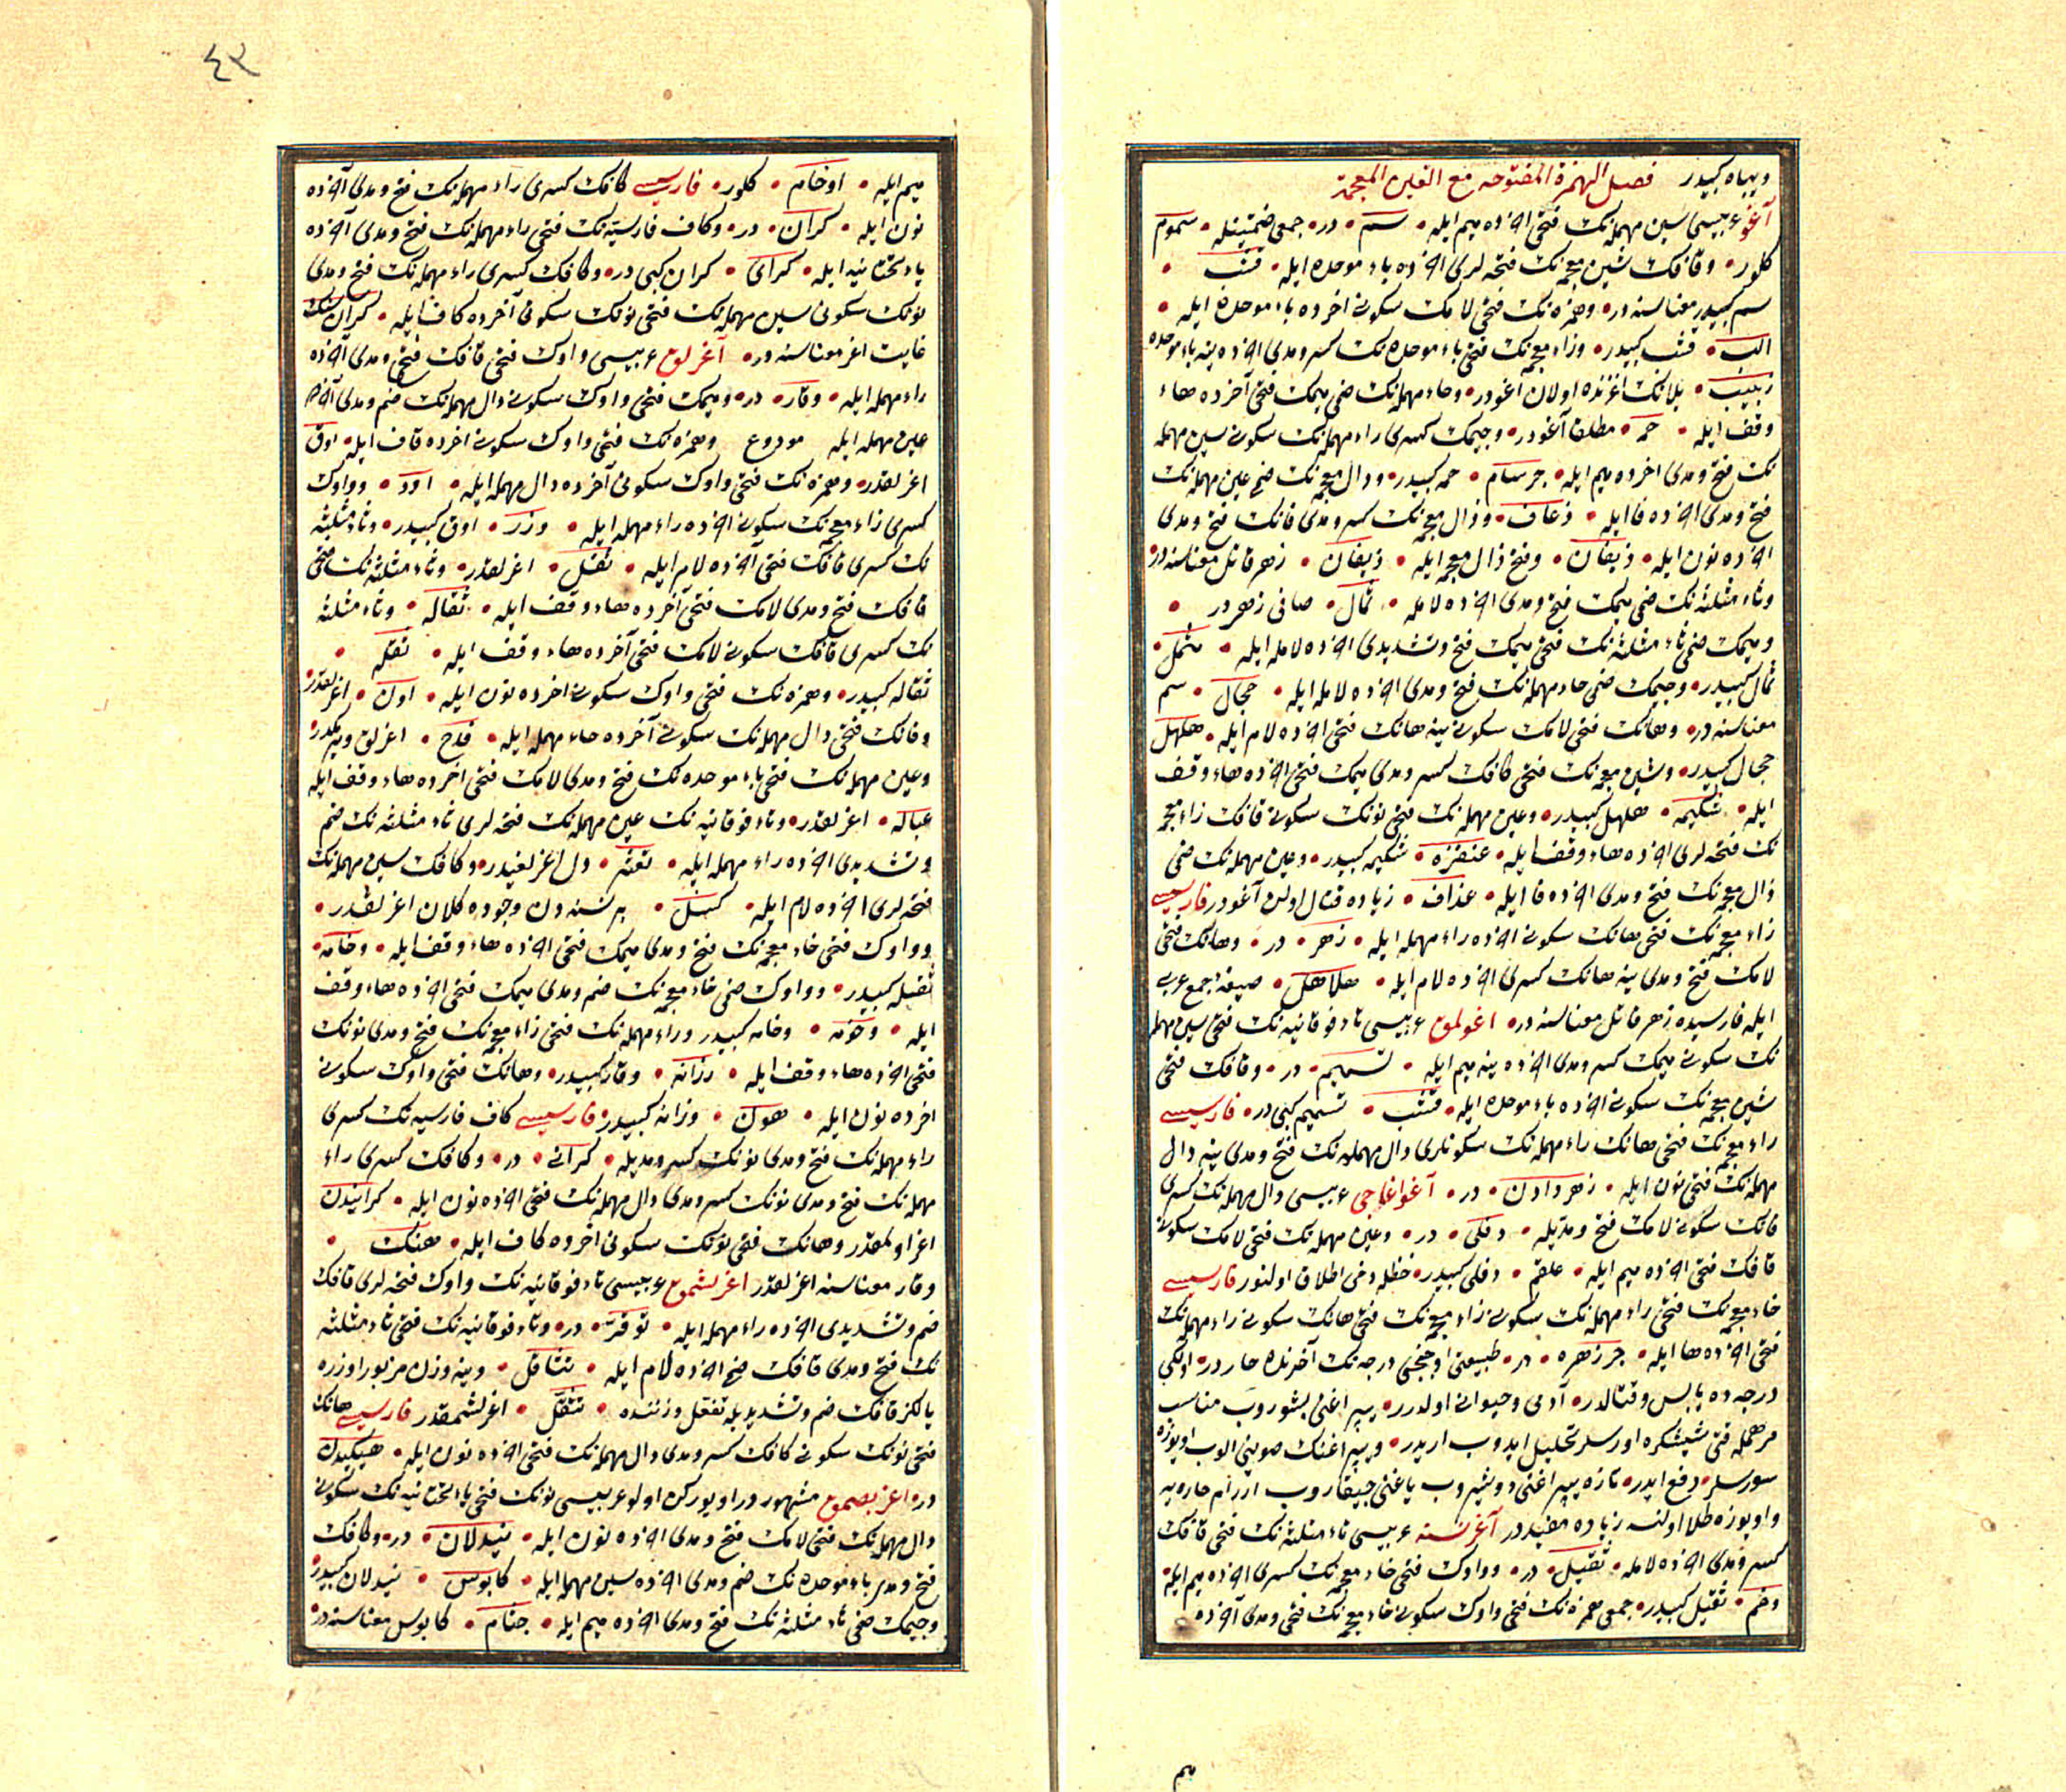 وبهاه كبيدر فصل الهمزة المفتوحه مع الغين المعجمة
آغو عربيسى سين مهمله نك فتحى اخرده ميم ايله • سم • در • جمعى ضمتينله • سموم
كلور • وقافك شين معجمه نك فتحه لرى اخرده باء موحده ايله • قشب •
سم كبيدر معناسنه در • وهمزه نك فتحى لامك سكونى اخرده باء موحده ايله •
الب • قشب كبيدر • وزاء معجمه نك فتحى باء موحده نك كسر ومدى اخرده ينه باء موحده
زبيب • يلانك اغزنده اولان اغودر • وحاء مهمله نك ضمى ميمك فتحى آخرده هاء
وقف ايله • حمه • مطلقا آغودر • وجيمك كسرى راء مهمله نك سكونى سين مهمله
نك فتح ومدى اخرده ميم ايله • جرسام • حمه كبيدر • وذال معجمه نك ضمى عين مهمله نك
فتح ومدى اخرده فا ايله • ذعاف • وذال معجمه نك كسر ومدى فانك فتح ومدى
اخرده نون ايله • ذيفان • وفتح ذال معجمه ايله • ذيفان • زهر قاتل معناسنه در
وثاء مثلثه نك ضمى ميمك فتح ومدى اخرده لامله • ثمال • صافى زهردر •
وميمك ضمى ثاء مثلثه نك فتحى ميمك فتح وتشديدى اخرده لامله ايله • مثمل •
ثمال كبيدر • وجيمك ضمى حاء مهمله نك فتح ومدى اخرده لامله ايله • جحال • سم
معناسنه در • وهانك فتحى لامك سكونى ينه هانك فتحى اخرده لام ايله • هلهل
جحال كبيدر • وشين معجمه نك فتحى كافك كسر ومدى ميمك فتحى اخرده هاء وقف
ايله • شكيمه • هلهل كبيدر • وعين مهمله نك فتحى نونك سكونى قافك زاء معجمه
نك فتحه لرى اخرده هاء وقف ايله • عنقزه • شكيمه كبيدر • وعين مهمله نك ضمى
ذال معجمه نك فتح ومدى اخرده فا ايله • عذاف • زياده قتال اولان آغودر فارسيسى
زاء معجمه نك فتحى هانك سكونى اخرده راء مهمله ايله • زهر • در • وهانك فتحى
لامك فتح ومدى ينه هانك كسرى اخرده لام ايله • هلاهل • صيغهٔ جمع عربى
ايله فارسيده زهر قاتل معناسنه در • اغولمق عربيسى تاء فوقانيه نك فتحى سين مهمله
نك سكونى ميمك كسر ومدى اخرده ينه ميم ايله • تسميم • در • وقافك فتحى
شين معجمه نك سكونى اخرده باء موحده ايله • قشب • تسميم كبى در • فارسيسى
زاء معجمه نك فتحى هانك راء مهمله نك سكونلرى دال مهمله نك فتح ومدى ينه دال
مهمله نك فتحى نون ايله • زهر دادن • در • آغو اغاجى عربيسى دال مهمله نك كسرى
فانك سكونى لامك فتح ومديله • دفلى • در • وعين مهمله نك فتحى لامك سكونى
قافك فتحى اخرده ميم ايله • علقم • دفلى كبيدر • حنظله دخى اطلاق اولنور فارسيسى
خاء معجمه نك فتحى راء مهمله نك سكونى زاء معجمه نك فتحى هانك سكونى راء مهمله نك
فتحى اخرده ها ايله • خرزهره • در • طبيعتى اوچنجى درجه نك آخرنده حار در • اولكى
درجه ده يابس وقتالدر • آدمى وحيوانى اولدرر • پير اغنى بشوروب مناسب
مرهمله قتى شيشكره اورسلر تحليل ايدوب اريدر • وپير اغنك صوينى الوب اويوزه
سورسلر • دفع ايدر • تازه پير اغنى دوشيروب ياغنى چيقاروب اررام حاره يه
واويوزه طلا اولنسه زياده مفيددر آغر نسنه عربيسى ثاء مثلثه نك فتحى قافك
كسر ومدى اخرده لامله • ثقيل • در • وواوك فتحى خاء معجمه نك كسرى اخرده ميم ايله
وخم • ثقيل كبيدر • جمعى همزه نك فتحى واوك سكونى خاء معجمه نك فتحى ومدى آخرده
ميم
٤٣
ميم ايله • اوخام • كلور • فارسيسى كافك كسرى راء مهمله نك فتح ومدى آخرده
نون ايله • كران • در • وكاف فارسيه نك فتحى راء مهمله نك فتح ومدى آخرده
ياء تحتانيه ايله • كراى • كران كبى در • وكافك كسرى راء مهمله نك فتح ومدى
نونك سكونى سين مهمله نك فتحى نونك سكونى آخرده كاف ايله • كران سنك
غايت اغر معناسنه در • آغرلق عربيسى واوك فتحى قافك فتحى ومدى آخرده
راء مهمله ايله • وقار • در • وميمك فتحى واوك سكونى دال مهمله نك ضم ومدى آخرده
عين مهمله ايله مودوع وهمزه نك فتحى واوك سكونى اخرده قاف ايله • اوق
اغرلقدر • وهمزه نك فتحى واوك سكونى آخرده دال مهمله ايله • اود • وواوك
كسرى زاء معجمه نك سكونى اخرده راء مهمله ايله • وزر • اوق كبيدر • وثاء مثلثه
نك كسرى قافك فتحى آخرده لام ايله • ثقل • اغرلقدر • وثاء مثلثه نك فتحى
قافك فتح ومدى لامك فتحى آخرده هاء وقف ايله • ثقاله • وثاء مثلثه
نك كسرى قافك سكونى لامك فتحى آخرده هاء وقف ايله • ثقله •
ثقاله كبيدر • وهمزه نك فتحى واوك سكونى اخرده نون ايله • اون • اغرلقدر
وفانك فتحى دال مهمله نك سكونى آخرده حاء مهمله ايله • فدح • اغرلق
وعين مهمله نك فتحى باء موحده نك فتح ومدى لامك فتحى اخرده هاء وقف ايله
عباله • اغرلقدر • وتاء فوقانيه نك عين مهمله نك فتحه لرى ثاء مثلثه نك ضم
وتشديدى اخرده راء مهمله ايله • تعثر • دل اغرلغيدر • وكافك سين مهمله نك
فتحه لرى اخرده لام ايله • كسل • بر نسنه دن وجوده كلان اغرلقدر •
وواوك فتحى خاء معجمه نك فتح ومدى ميمك فتحى اخرده هاء وقف ايله • وخامه •
ثقيله كبيدر • وواوك ضمى خاء معجمه نك ضم ومدى ميمك فتحى اخرده هاء وقف
ايله • وخومه • وخامه كبيدر وراء مهمله نك فتحى زاء معجمه نك فتح ومدى نونك
فتحى اخرده هاء وقف ايله • رزانه • وقار كبيدر • وهانك فتحى واوك سكونى
اخرده نون ايله • هون • رزانه كبيدر • فارسيسى كاف فارسيه نك كسرى
راء مهمله نك فتح ومدى نونك كسر ومديله • كرانى • در • وكافك كسرى راء
مهمله نك فتح ومدى نونك كسر ومدى دال مهمله نك فتحى اخرده نون ايله • كرانيدن
اغر اولمقدر وهانك فتحى نونك سكونى اخرده كاف ايله • هنك •
وقار معناسنه اغرلقدر اغرلشمق عربيسى تاء فوقانيه نك واوك فتحه لرى قافك
ضم وتشديدى اخرده راء مهمله ايله • توقر • در • وتاء فوقانيه نك فتحى ثاء مثلثه
نك فتح ومدى قافك ضمى اخرده لام ايله • تثاقل • وينه وزن مزبور اوزره
يالكز قافك ضم وتشديديله تفعل وزننده • تثقل • اغرلشمقدر فارسيسى هانك
فتحى نونك سكونى كافك كسر ومدى دال مهمله نك فتحى اخرده نون ايله • هنكيدن
در • اغر بصمق مشهوردر اويوركن اولور عربيسى نونك فتحى ياء تحتانيه نك سكونى
دال مهمله نك فتحى لامك فتح ومدى اخرده نون ايله • نيدلان • در • وكافك
فتح ومدى باء موحده نك ضم ومدى اخرده سين مهمله ايله • كابوس • نيدلان كبيدر
وجيمك ضمى ثاء مثلثه نك فتح ومدى اخرده ميم ايله • جثام • كابوس معناسنه در